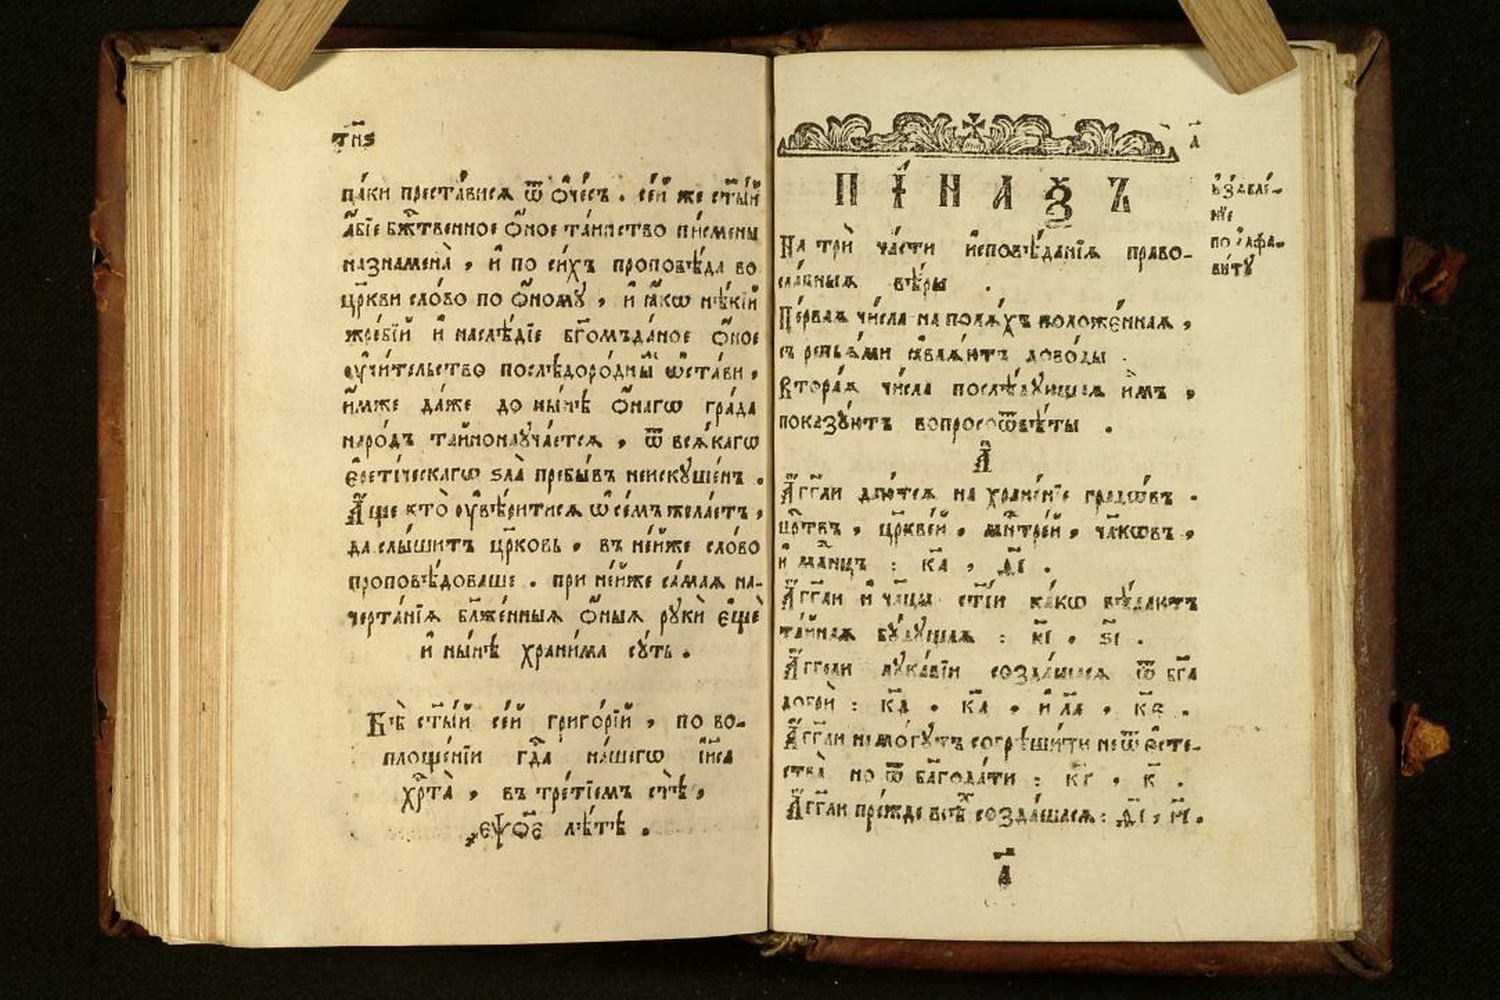 тн҃ѕ
па́ки преста́висѧ ѿ ѻ҆че́съ . се́й же ст҃ы́й
а҆́бїе бж҃твенное ѻ҆́ное та́инство пи́смены
назнамена̀ , и҆ по си́хъ проповѣ́да во
цр҃кви сло́во по ѻ҆́ному , и҆ ꙗ҆́кѡ нѣ́кїй
жре́бїй и҆ наслѣ́дїе бг҃омъда́ное ѻ҆́ное
ᲂу҆чи́тельство послѣдоро́дны̑ ѡ҆ста́ви ,
и҆́мже да́же до ны́нѣ ѻ҆́нагѡ гра́да
наро́дъ та́йнонауча́етсѧ , ѿ всѧ́кагѡ
є҆рети́ческагѡ ѕла̀ пребы́въ неискꙋше́нъ .
А҆́ще кто̀ ᲂу҆вѣ́ритисѧ ѡ҆ се́мъ жела́етъ ,
да слы́шитъ цр҃ковь , въ не́йже сло́во
проповѣ́доваше . при не́йже са́маѧ на-
черта́нїѧ бл҃же́нныѧ ѻ҆́ныѧ рꙋкѝ є҆щѐ
и҆ ны́нѣ храни́ма сꙋ́ть .
Бѣ̀ ст҃ы́й се́й григо́рїй , по во-
площе́нїи гд҃а на́шегѡ і҆и҃са
хр҃та̀ , въ тре́тїемъ стѣ̀ ,
҂єѱѳ҃є лѣ́тѣ .
а҃
ПІ́НАѮЪ
На трѝ ча́сти и҆сповѣ́данїѧ право-
сла́вныѧ вѣ́ры .
Пе́рваѧ чи́сла на полѧ́хъ положе́ннаѧ ,
съ репьѧ́ми ꙗ҆влѧ́ютъ дово́ды .
Втора́ѧ чи́сла послѣ́дꙋющаѧ и҆̀мъ ,
показꙋ́ютъ вопросоѿвѣ́ты .
А҃
А҆́гг҃ли даю́тсѧ на хране́нїе градѡ́въ .
цр҃твъ , цр҃кве́й , мн҃тре́й , чл҃кѡвъ ,
и҆ мл҃нцъ : ка҃ , дı҃ .
А҆́гг҃ли и҆ чл҃цы ст҃і́и ка́кѡ вѣ́даютъ
та́йнаѧ бꙋ́дꙋщаѧ : нı҃ , ѕı҃ .
А҆́ггели лꙋка́вїи созда́шасѧ ѿ бг҃а
добрѝ : ка҃ , ка҃ , и҆ ла҃ , ке҃ .
А҆́гг҃ли не мо́гꙋтъ согрѣши́ти не ѿ є҆сте-
ства̀ но ѿ бл҃года́ти : кг҃ , к҃ .
А҆́гг҃ли пре́жде всѣ́хъ созда́шасѧ : дı҃ , иı҃ .
а҃